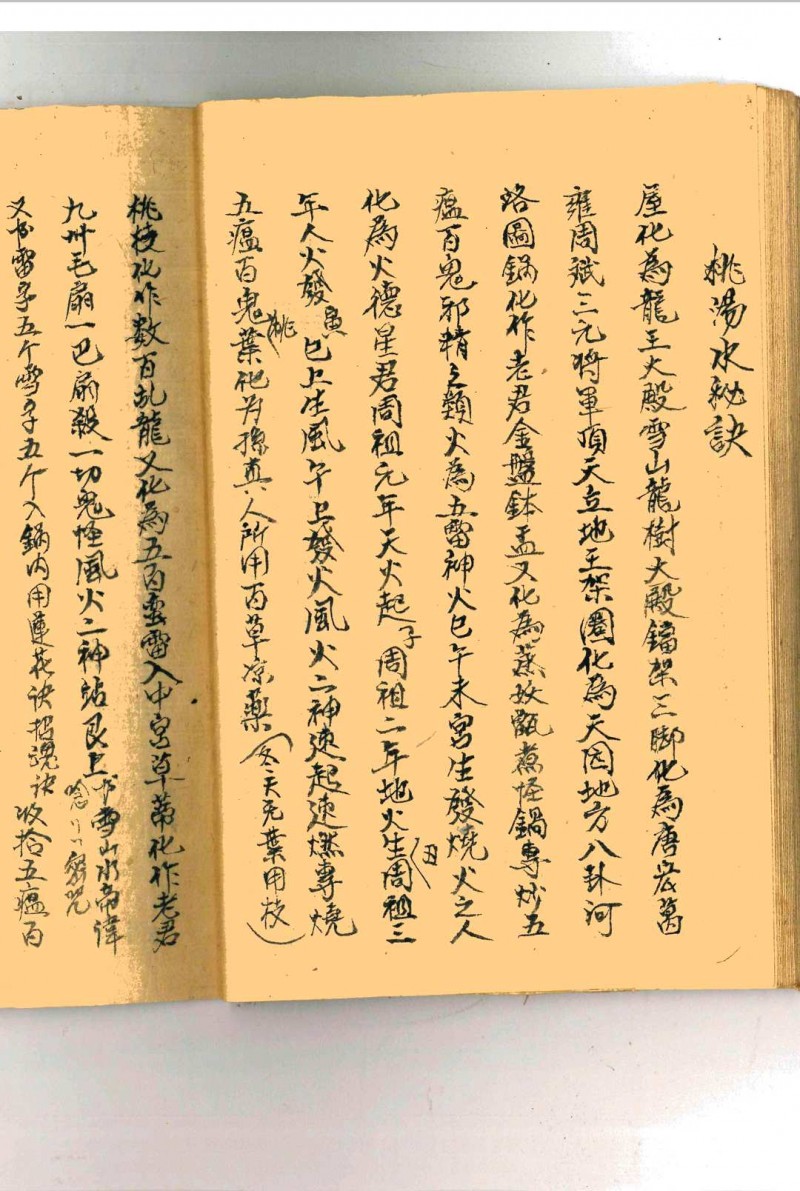 桃湯水秘訣
屋化為龍王大殿雪山龍樹大殿鐺架三脚化為唐宏葛
雍周斌三元将軍頂天立地王架圈化為天因地方八卦河
洛圖鍋化作老君金盤鉢盂又化為蒸妖甑煮怪鍋專炒五
瘟百鬼邪精之類火為五雷神火巳午未宮生發燒火之人
化為火德星君周祖元年天火起子周祖二年地火生丑周祖三
年人火發寅巳上生風午上發火風火二神速起速燃專燒
五瘟百鬼桃葉化为孫真人所用百草凉藥（冬天无葉用枝）
桃枝化作数百乱龍又化為五百蛮雷入中宮草蓆化作老君
九州毛扇一巴扇殺一切鬼怪風火二神站艮上书雪山水帝諱
念密咒
又书雷字五个雪字五个入鍋内用蓮花訣招魂訣收拾五瘟百